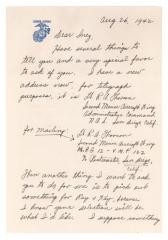 Aug 26, 1942
Dear Inez,
Have several things to
tell you and a very special favor
to ask of you. I have a new
address now, for telegraph
purposes, it is Lt R. A.
Second Marine Aircraft Wing
Administrative Command
N.A.S. San Diego Calif.
for mailing: Lt R. A.
Second Marine Aircraft Wing
M.A.G. 12 - V.M.F. 122
℅ Postmaster, San Diego,
Calif.
Now another thing I want to ask
you to do for me is to pick out
something for Ray & Kay, because
I know your selection will be
what I'd like. I suppose something